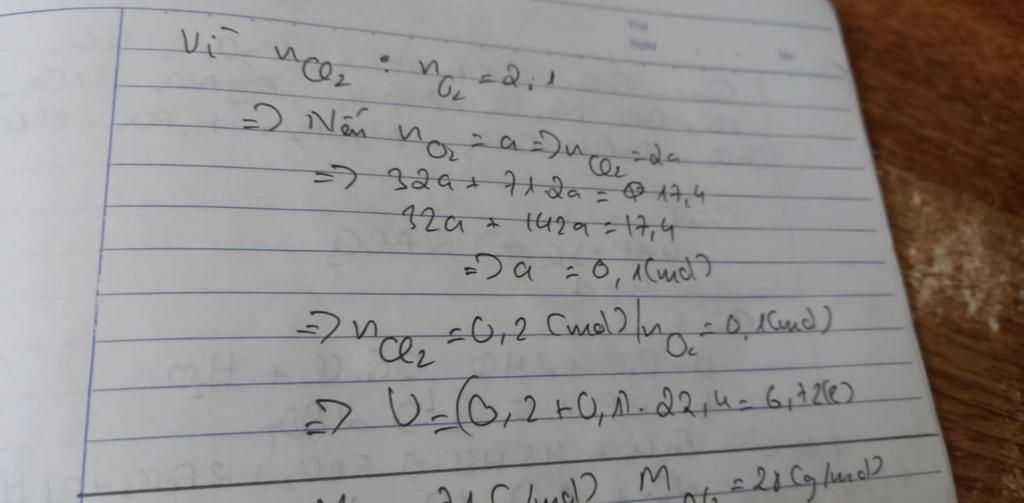 Thứ
Ngày
No
Vì n_Cl2 : n_O2 = 2:1
=> Nên n_O2 = a => n_Cl2 = 2a
=> 32a + 71.2a = 17,4
32a + 142a = 17,4
=> a = 0,1(mol)
=> n_Cl2 = 0,2 (mol) / n_O2 = 0,1(mol)
=> V = (0,2 + 0,1). 22,4 = 6,72(l)
M = 28(g/mol)